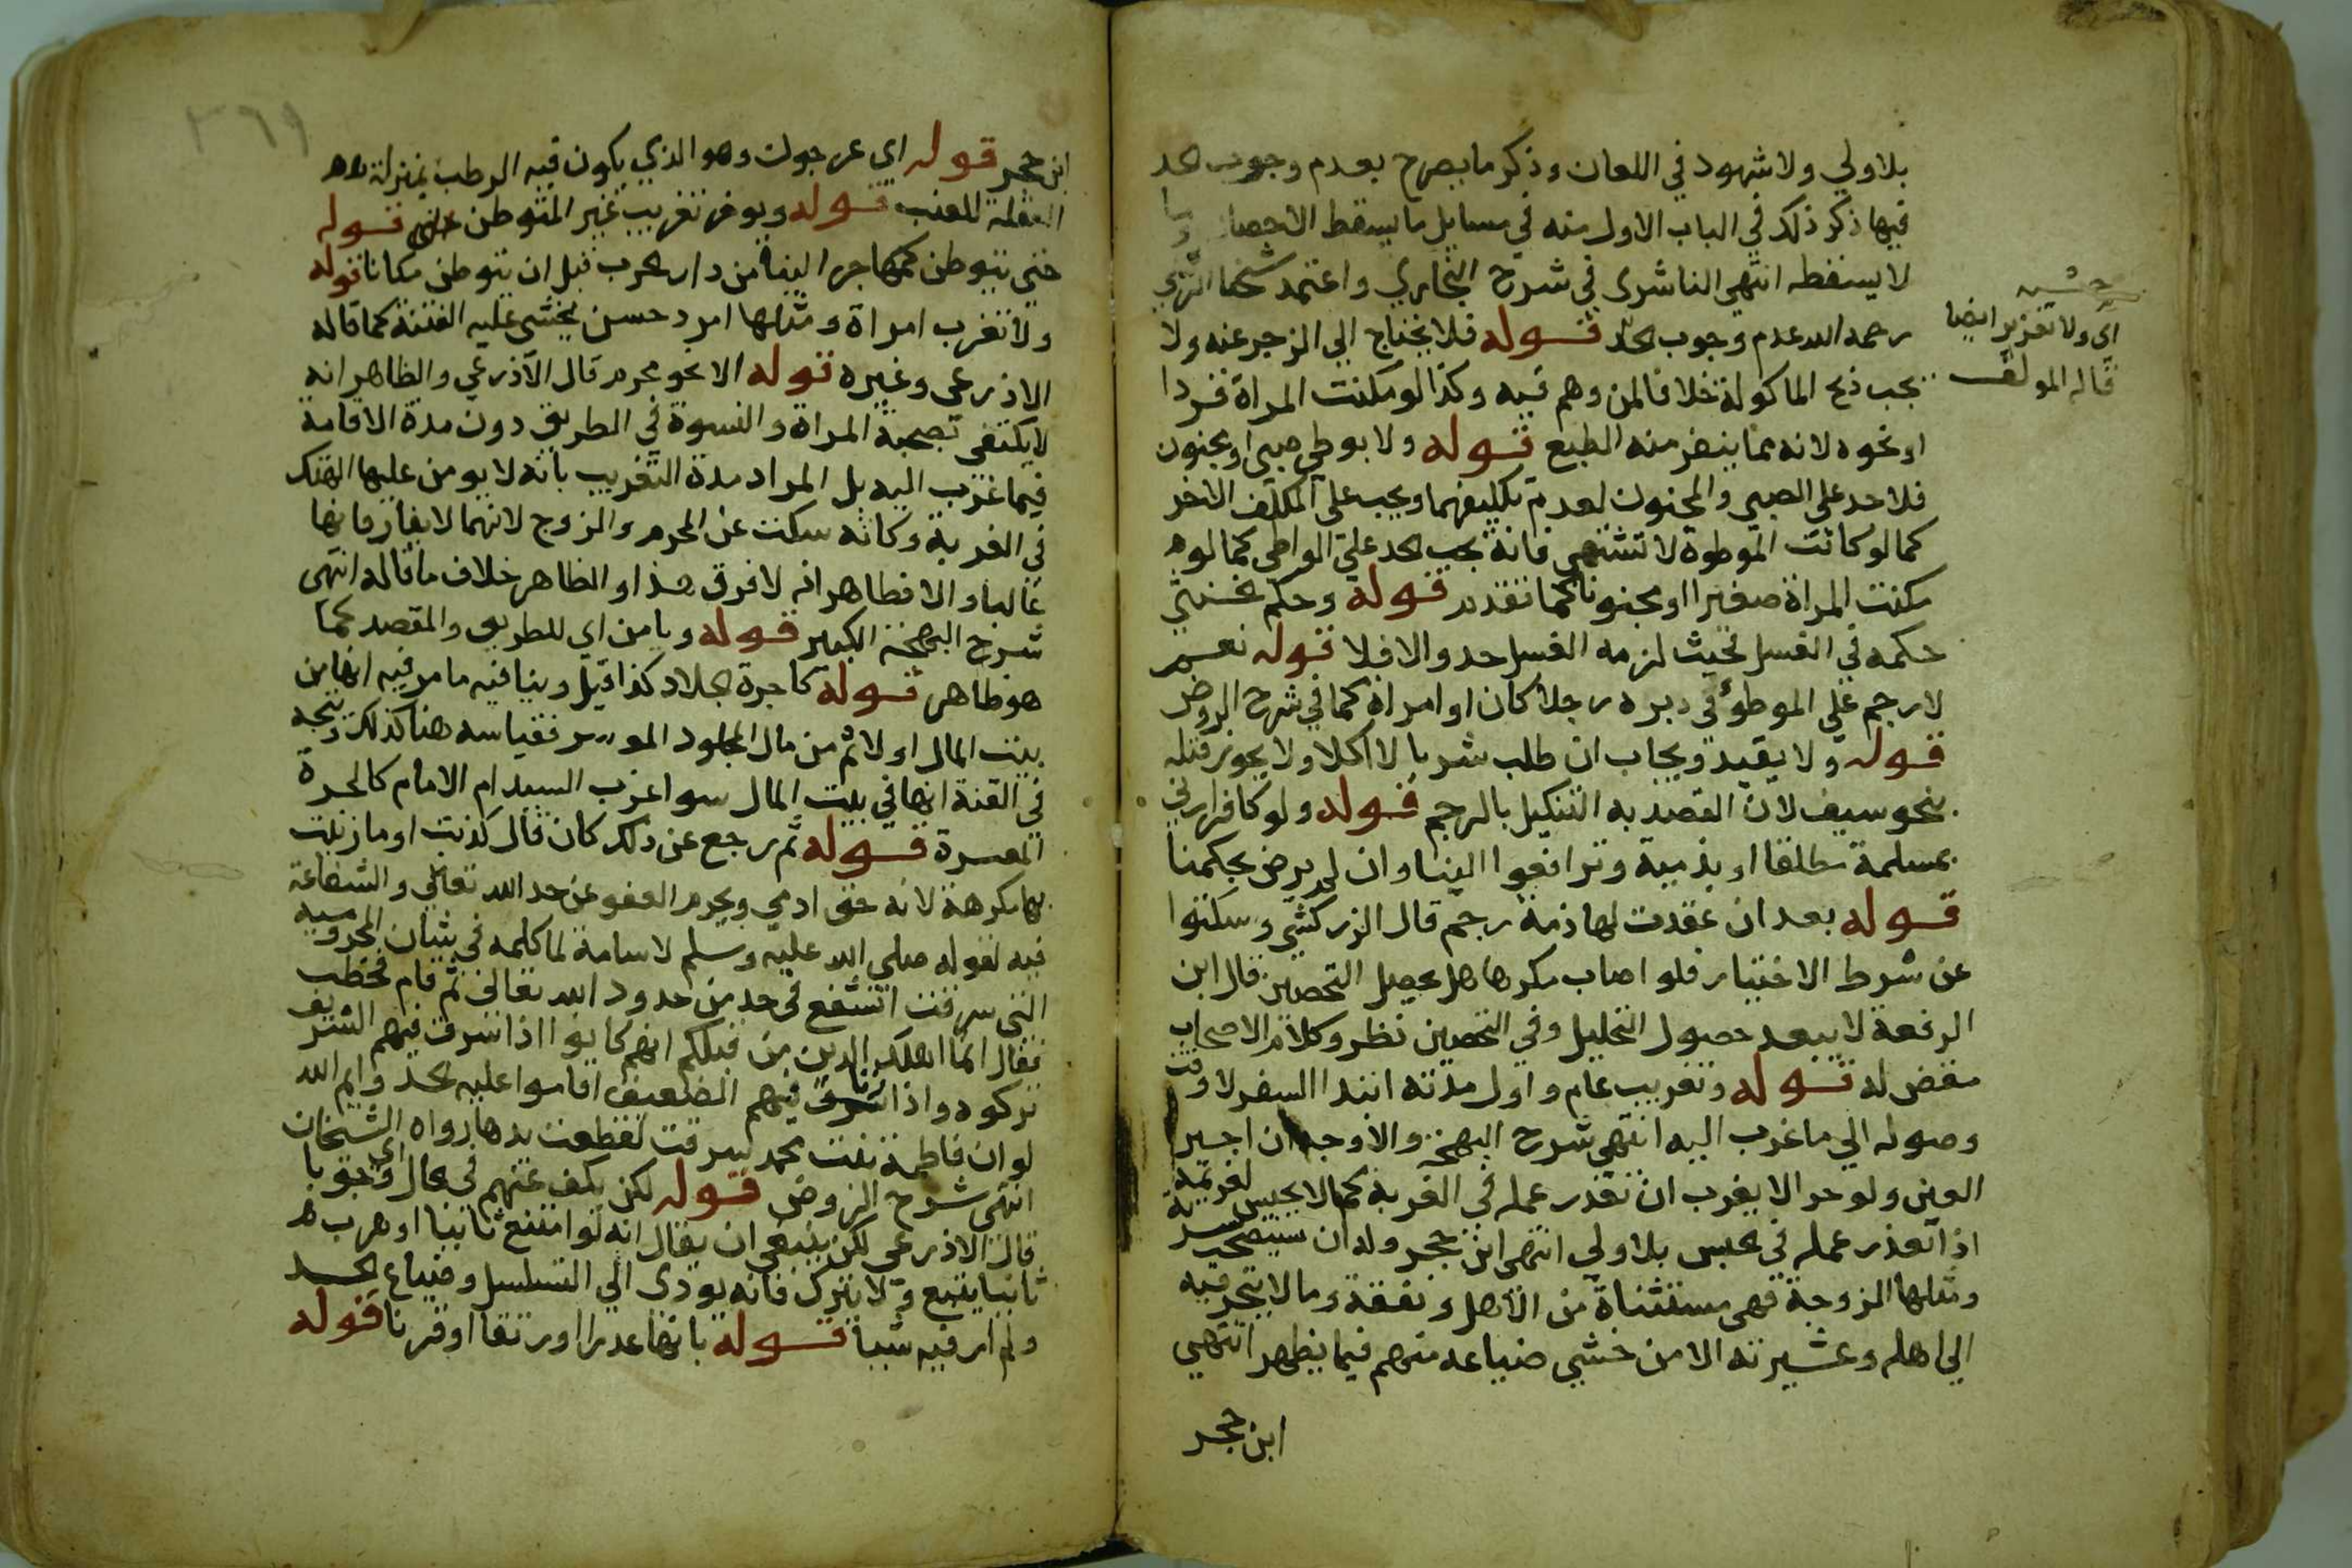 بلا ولي ولا شهود في اللعان وذكر ما يصرح بعدم وجوب الحد
فيها ذكر ذلك في الباب الاول منه في مسايل ما يسقط الاحصان وما
لا يسقطه انتهى الناشري في شرح البخاري واعتمد شيخنا
رحمه الله عدم وجوب الحد قوله فلا يحتاج الي الزجر عنه ولا
يجب ذبح الماكولة خلافا لمن وهم فيه وكذا لو مكنت المراة قردا
او نحوه لانه مما ينفر منه الطبع قوله ولا بوطي صبي او مجنون
فلا حد على الصبي والمجنون لعدم تكليفهما ويجب على المكلف الاخر
كما لو كانت الموطوة لا تشتهى فانه يجب الحد على الواطي كما لو
مكنت المراة صغيرا او مجنونا كما تقدم قوله وحكم الخنثى
حكمه في الغسل فحيث لزمه الغسل حد والا فلا قوله نعم
لا رجم على الموطوء في دبره رجلا كان او امراة كما في شرح الروض
قوله ولا يقيد ويجاب ان طلب شربا لا اكلا ولا يجوز قتله
بنحو سيف لان القصد به التنكيل بالرجم قوله ولو كافرا زني
بمسلمة مطلقا او بذمية وترافعوا الينا وان لم يرض بحكمنا
قوله بعد ان عقدت لها ذمة رجم قال الزركشي وسكتوا
عن شرط الاختيار فلو اصاب مكرها هل يحصل التحصين قال ابن
الرفعة لا يبعد حصول التحليل وفي التحصين نظر وكلام الاصحاب
مفض له قوله وتغريب عام واول مدته ابتدا السفر لا وقت
وصوله الي ما غرب اليه انتهي شرح البهجة والاوجه ان اجير
العين ولو حرا لا يغرب ان تعذر عمله في الغربة كما لا يحبس لغريمه
اذا تعذر عمله في الحبس بلا ولي انتهى ابن حجر وله ان يستصحب سرية
ومثلها الزوجة فهي مستثناة من الاهل ونفقة وما لا يتجر فيه
الي اهله وعشيرته الا من خشي ضياعه منهم فيما يظهر انتهي
ابن حجر
حشيه
اى ولا تعزير ايضا
قاله المولف
٣٦٩
ابن حجر قوله اي عرجون وهو الذي يكون فيه الرطب بمنزلة
للعنب قوله ويوخر تغريب غير المتوطن حتى قوله
حتى يتوطن كمهاجر الينا من دار الحرب قبل ان يتوطن مكانا قوله
ولا تغرب امراة ومثلها امرد حسن يخشى عليه الفتنة كما قاله
الاذرعي وغيره قوله الا بنحو محرم قال الآذرعي والظاهر انه
لا يكتفى بصحبة المراة والنسوة في الطريق دون مدة الاقامة
فيما غرب اليه بل المراد مدة التغريب بانه لا يومن عليها الهتك
في الغربة وكانه سكت عن المحرم والزوج لانهما لا يفارقانها
غالبا والا فظاهر انه لا فرق هذا والظاهر خلاف ما قاله انتهى
شرح البهجة الكبير قوله ويامن اي للطريق والمقصد كما
هو ظاهر قوله كاجرة الجلاد كذا قيل وينافيه ما مر فيه انها من
بيت المال اولا ثم من مال المجلود الموسر فقياسه هنا كذلك ويتجه
في القنة انها في بيت المال سوا غرب السيد ام الامام كالحرة
المعسرة قوله ثم رجع عن ذلك كان قال كذبت او ما زنيت
بها مكرهة لانه حق ادمي ويحرم العفو عن حد الله تعالى والشفاعة
فيه لقوله صلي الله عليه وسلم لاسامة لما كلمه في شان المخزومية
التي سرقت اتشفع في حد من حدود الله تعالى ثم قام فخطب
فقال انما اهلك الذين من قبلكم انهم كانوا اذا سرق فيهم الشريف
تركوه واذا سرق فيهم الضعيف اقاموا عليه الحد وايم الله
لو ان فاطمة بنت محمد سرقت لقطعت يدها رواه الشيخان
انتهى شرح الروض قوله لكن يكف عنهم في الحال اى وجوبا
قال الاذرعي لكن ينبغي ان يقال انه لو امتنع ثانيا او هرب
ثانيا يتبع ولا يترك فانه يودى الي التسلسل وضياع الحد
ولم ار فيه شيا قوله بانها عذرا او رتقا او قرنا قوله